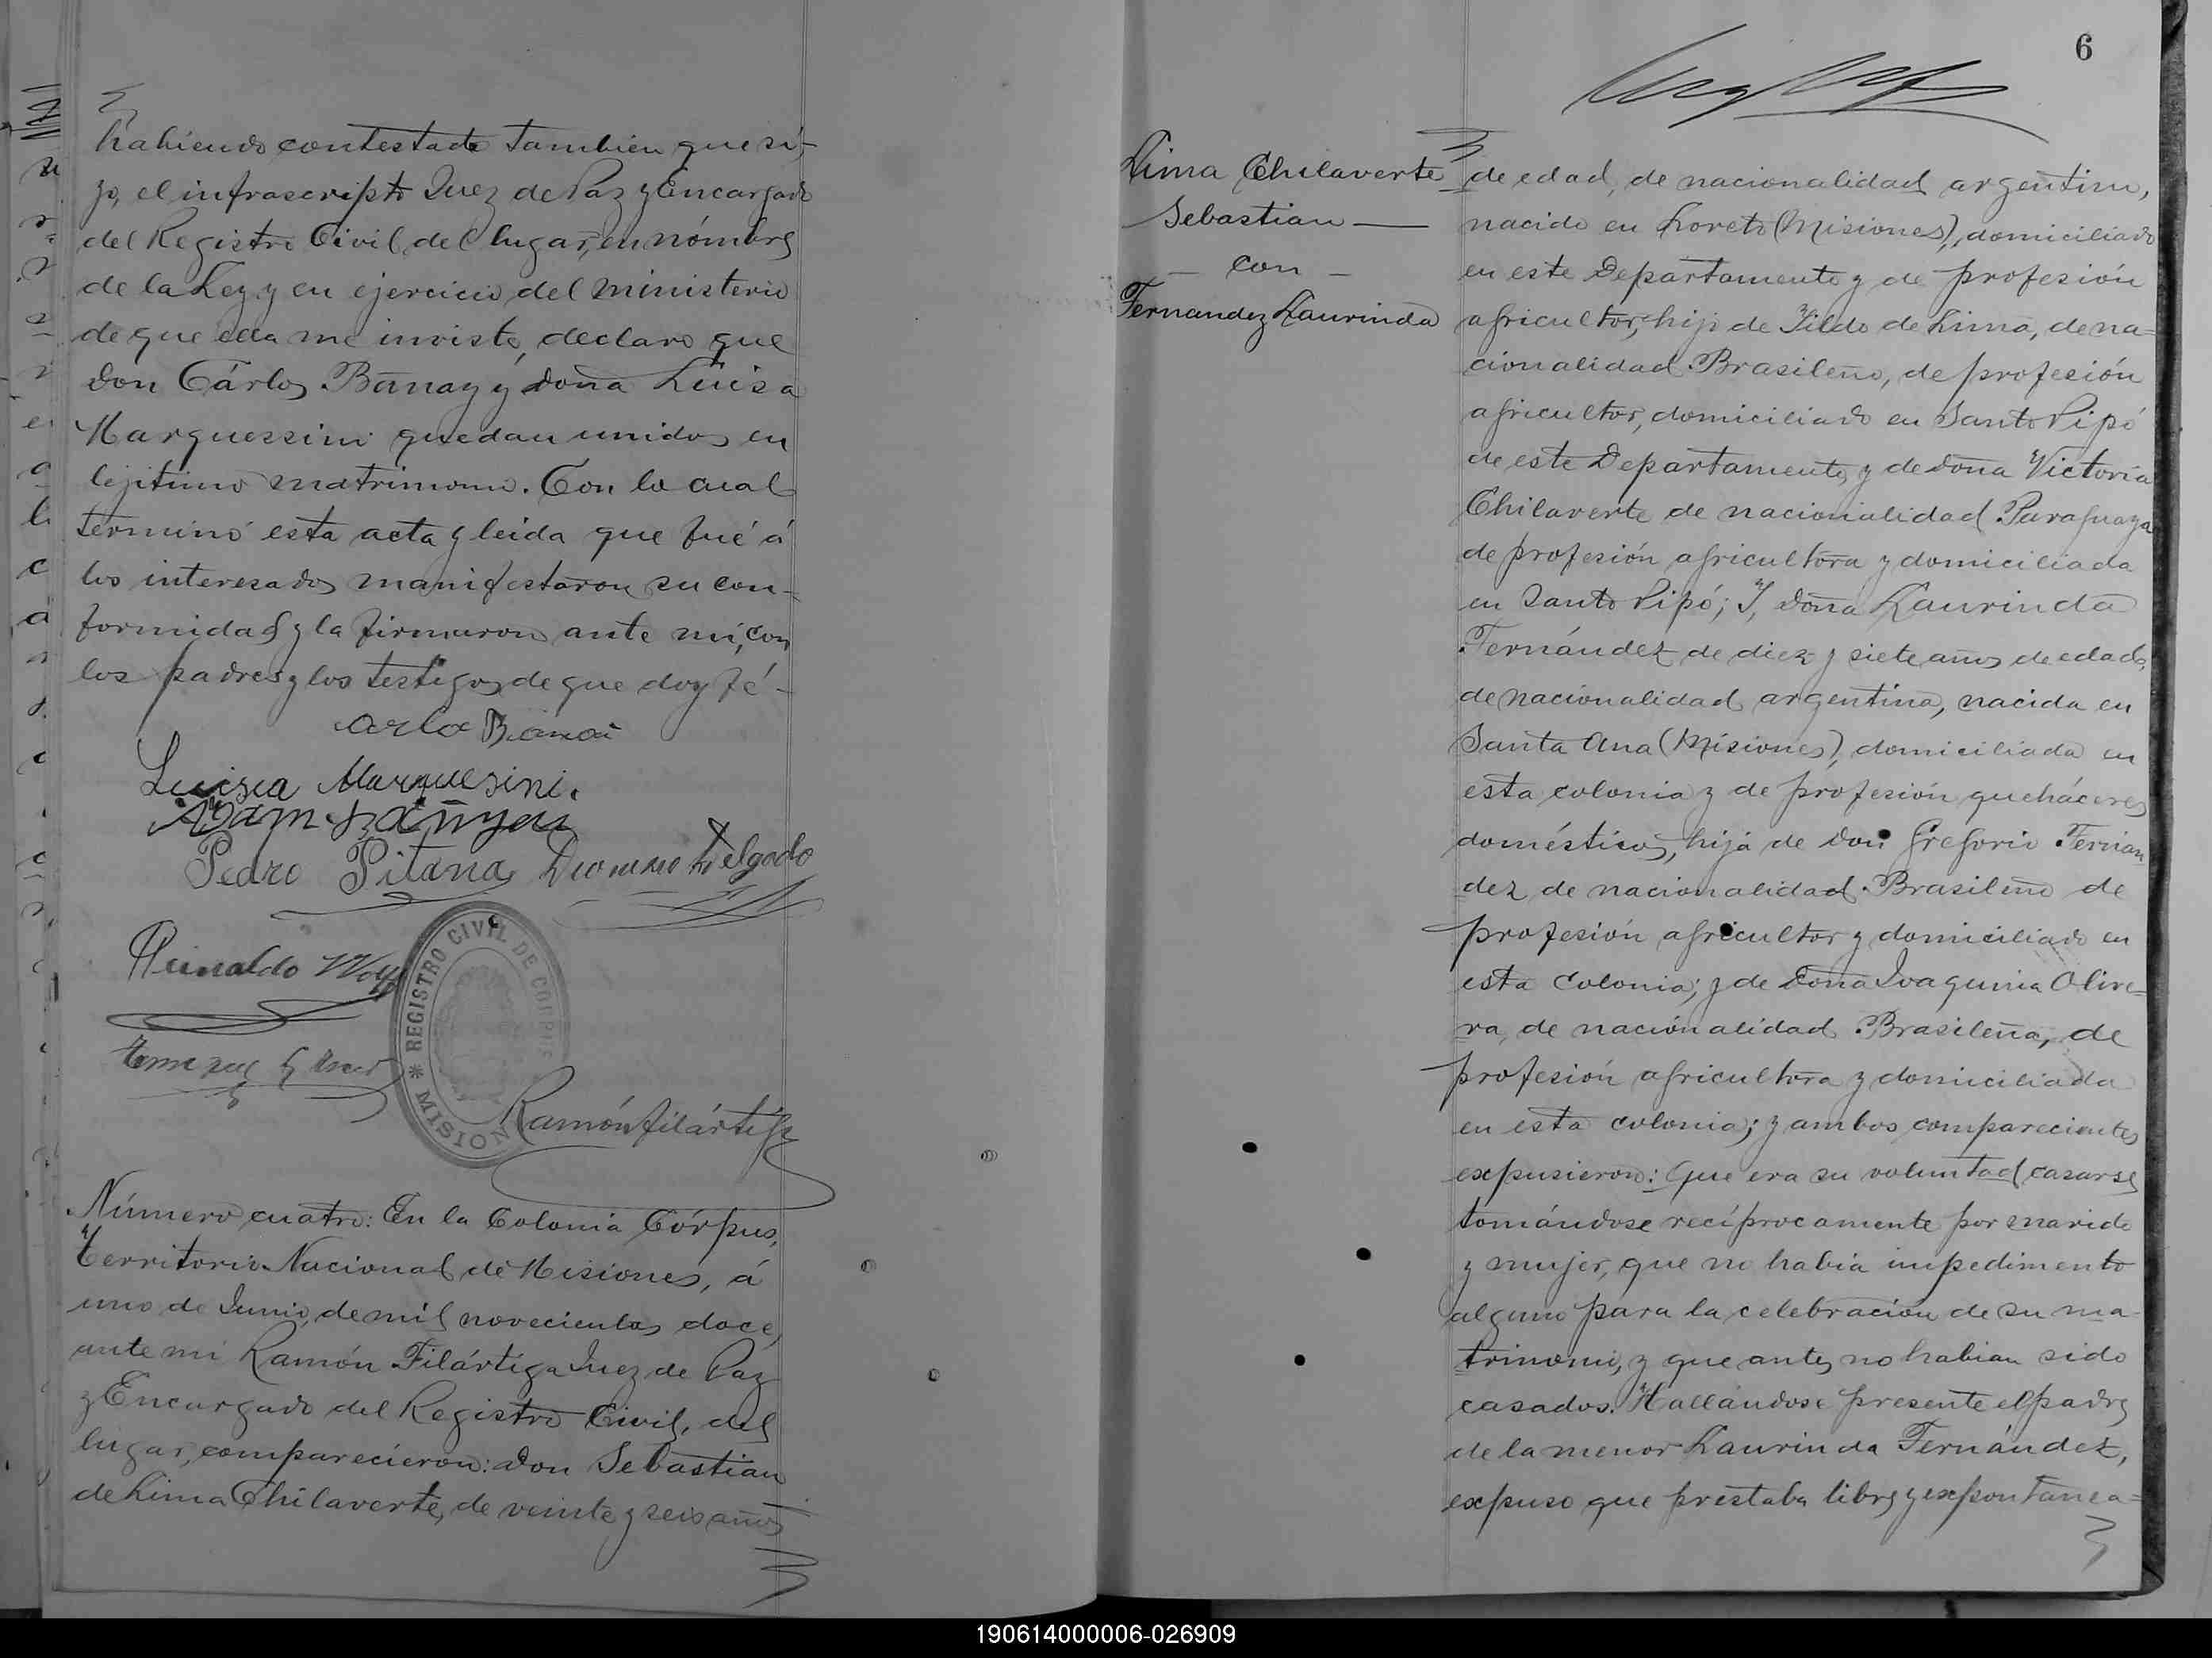 habiendo contestado tambien que sí,
yo, el infrascripto Juez de Paz y Encargado
del Registro Civil del lugar, en nómbre
de la Ley y en ejercicio del ministerio
de que ella me inviste, declaro que
Don Cárlos Banay y doña Luisa
Marquessini quedan unidos en
lejitimo matrimonio. Con lo cual
terminó esta acta y leida que fué á
los interesados manifestaron su con-
formidad y la firmaron ante mi, con
los padres y los testigos de que doy fé-
Luisia Marquesini.
Pedro Pitana Delgado
Reinaldo
REGISTRO CIVIL DE CORPUS
* MISION
Ramón Filártiga
Número cuatro: En la Colonia Córpus,
territorio Nacional de Misiones, á
uno de Junio, de mil novecientos doce,
ante mi Ramón Filártiga Juez de Paz
y Encargado del Registro Civil, del
lugar, comparecieron: Don Sebastian
de Lima Chilaverte, de veinte y seis años
6
Lima Chilaverte
Sebastian —
— con —
Fernandez Laurinda
de edad, de nacionalidad argentina,
nacido en Loreto (Misiones), domiciliado
en este Departamento y de profesión
agricultor, hijo de Tildo de Lima, de na-
cionalidad Brasileño, de profesión
agricultor, domiciliado en Santo Pipó
de este Departamento, y de doña Victoria
Chilaverte de nacionalidad Paraguaya
de profesión agricultora y domiciliada
en Santo Pipó; Y, doña Laurinda
Fernández de diez y siete años de edad,
de nacionalidad argentina, nacida en
Santa Ana (Misiones), domiciliada en
esta colonia y de profesión queháceres
domésticos, hija de Don Gregorio Fernan
dez de nacionalidad Brasileño de
profesión agricultor y domiciliado en
esta Colonia; y de Doña Joaquina Olive-
ra, de nacionalidad Brasileña, de
profesión agricultora y domiciliada
en esta colonia; y ambos comparecientes
expusieron: Que era su voluntad casarse
tomándose recíprocamente por marido
y mujer, que no habia impedimento
alguno para la celebración de su ma-
trimonio, y que antes no habian sido
casados. Hallándose presente el padre
de la menor Laurinda Fernández,
expuso que prestaba libre y expontanea-
190614000006-026909